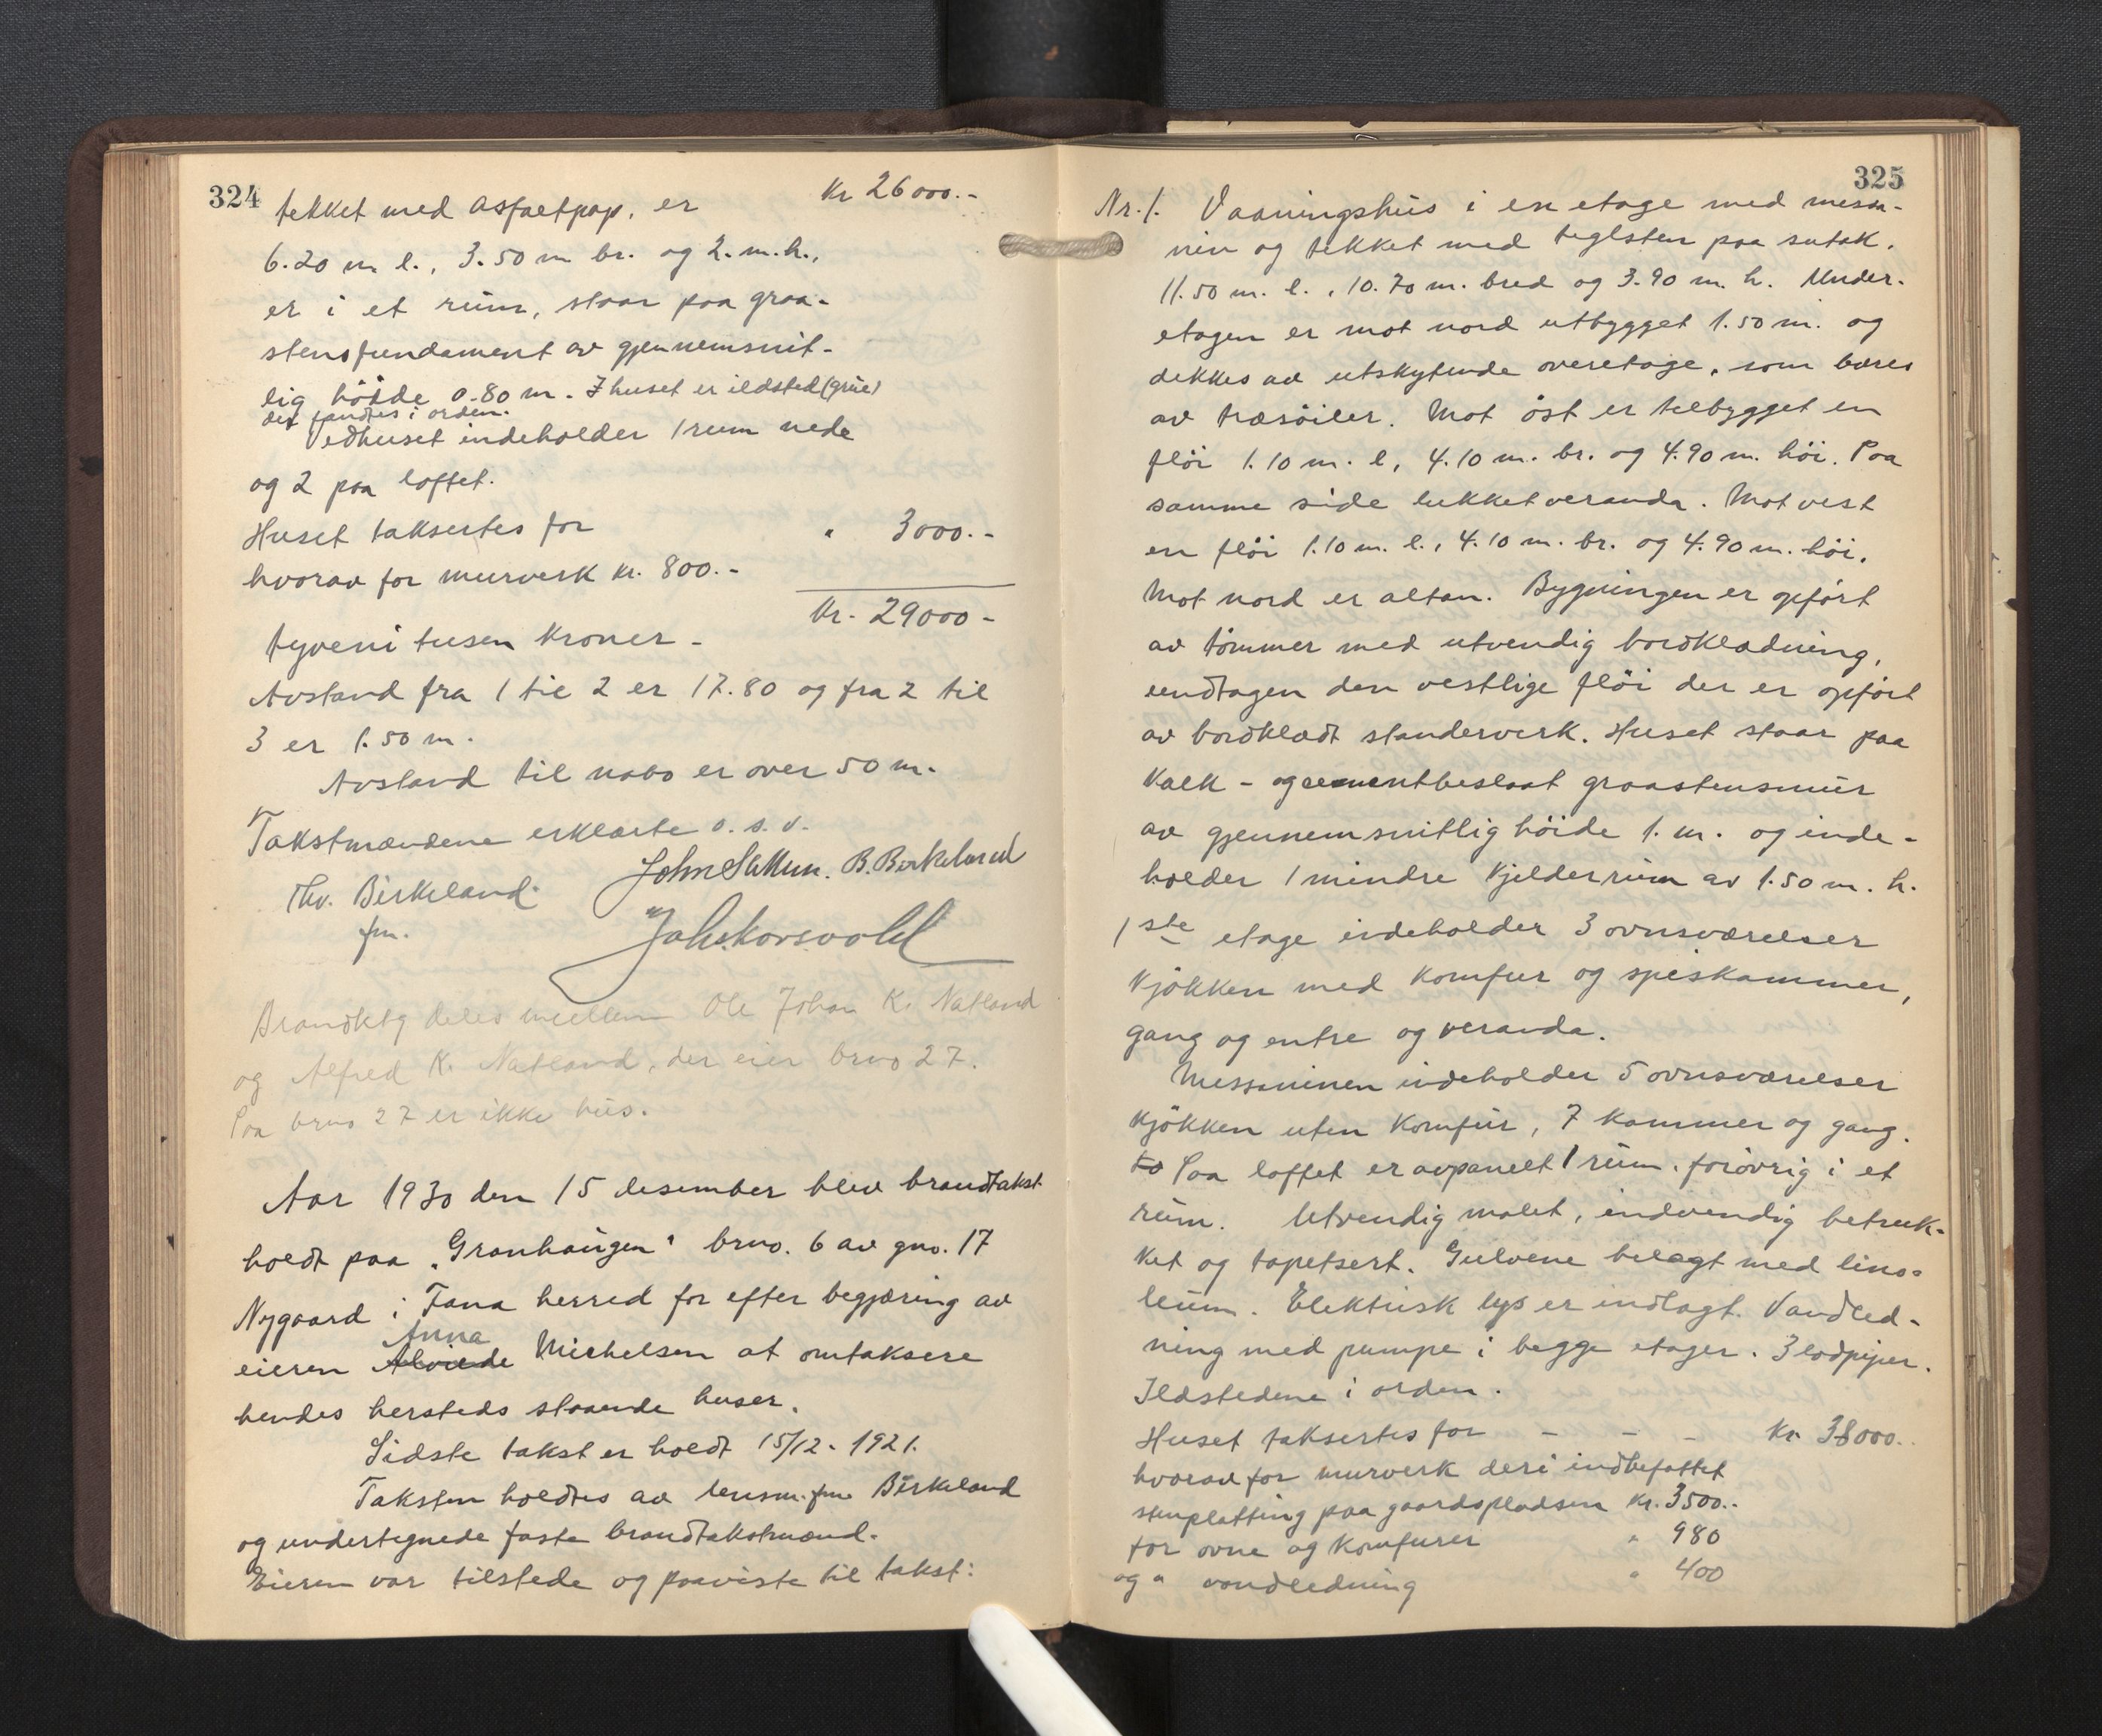 324
tekket med asfaltpap, er Kr 26000.-
6.20 m l., 3.50 m br. og 2. m. h.,
er i et rum, staar paa graa-
stensfundament av gjennemsnit-
lig höide 0.80 m. I huset er ildsted (grue)
det fandtes i orden.
Vedhuset indeholder 1 rum nede
og 2 paa loftet.
Huset taksertes for " 3000.-
hvorav for murverk kr. 800.-
Kr. 29000-
tyveni tusen kroner -
Avstand fra 1 til 2 er 17.80 og fra 2 til
3 er 1.50 m.
Avstand til nabo er over 50 m.
Takstmændene erklærte o. s. v.
Thv. Birkeland John B. Birkeland
fm.
Brandktg deles mellem Ole Johan K. Natland
og Alfred K. Natland, der eier brno 27.
Paa brno 27 er ikke hus.
Aar 1930 den 15 desember blev brandtakst
holdt paa "Granhaugen" brno. 6 av gno. 17
Nygaard i Fana herred for efter begjæring av
Anna
eieren Alvilde Michelsen at omtaksere
hendes hersteds staaende huser.
Sidste takst er holdt 15/12-1921.
Taksten holdtes av lensm. fm. Birkeland
og undertegnede faste brandtakstmænd.
Eieren var tilstede og paaviste til takst:
325
Nr. 1. Vaaningshus i en etage med messa-
nin og tekket med teglsten paa sutak.
11.50 m. l., 10.70 m. bred og 3.90 m. h. Under-
etagen er mot nord utbygget 1.50 m. og
dekkes av utskytende overetage, som bæres
av træsöiler. Mot öst er tilbygget en
flöi 1.10 m. l, 4.10 m. br. og 4.90 m. höi. Paa
samme side lukket veranda. Mot vest
en flöi 1.10 m. l., 4.10 m. br. og 4.90 m. höi.
Mot nord er altan. Bygningen er opfört
av tömmer med utvendig bordklædning,
undtagen den vestlige flöi der er opfört
av bordklædt standerverk. Huset staar paa
kalk- og cementbeslaat graastensmur
av gjennemsnitlig höide 1. m. og inde-
holder 1 mindre kjelderrum av 1.50 m. h.
1ste etage indeholder 3 ovnsværelser
kjökken med komfur og spiskammer,
gang og entre og veranda.
Messaninen indeholder 5 ovnsværelser
kjökken uten komfur, 7 kammer og gang.
to Paa loftet er avpanelt 1 rum, forövrig i et
rum. Utvendig malet, indvendig betruk-
ket og tapetsert. Gulvene belagt med lino-
leum. Elektrisk lys er indlagt. Vandled-
ning med pumpe i begge etager. 3 lodpiper.
Ildstedene i orden.
Huset taksertes for - - - Kr. 38000.
hvorav for murverk deri indbefattet
stenplatting paa gaardspladsen kr. 3500.-
for ovne og komfurer " 980
og " vandledning " 400